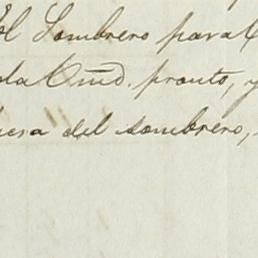 el Sombrero para
la Cmd. pronto, y
del sombrero,